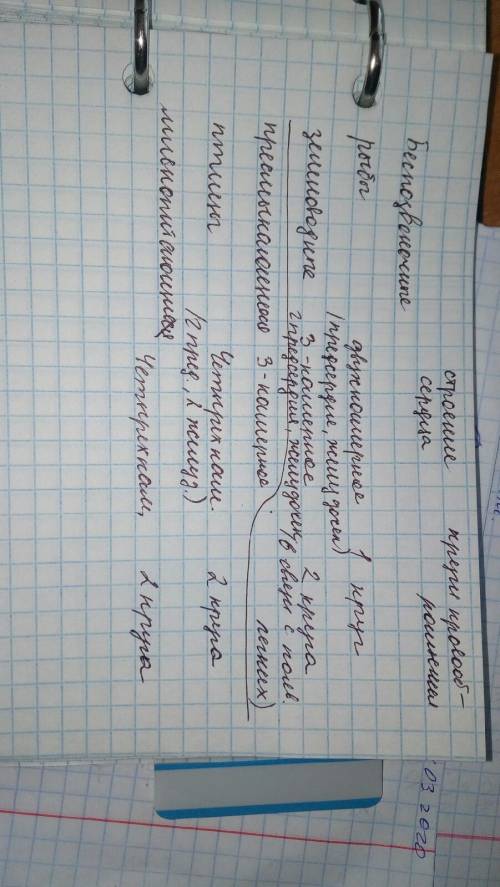 строение круги кровооб-
сердца ращения
Беспозвоночные
рыбы двухкамерное 1 круг
(предсердие, желудочек)
земноводные 3-камерное 2 круга
2 предсердия, желудочек (в связи с появ.
пресмыкающиеся 3-камерное легких)
птицы Четырехкам. 2 круга
(2 пред., 2 желуд.)
млекопитающиеся Четырехкам. 2 круга
03 2020